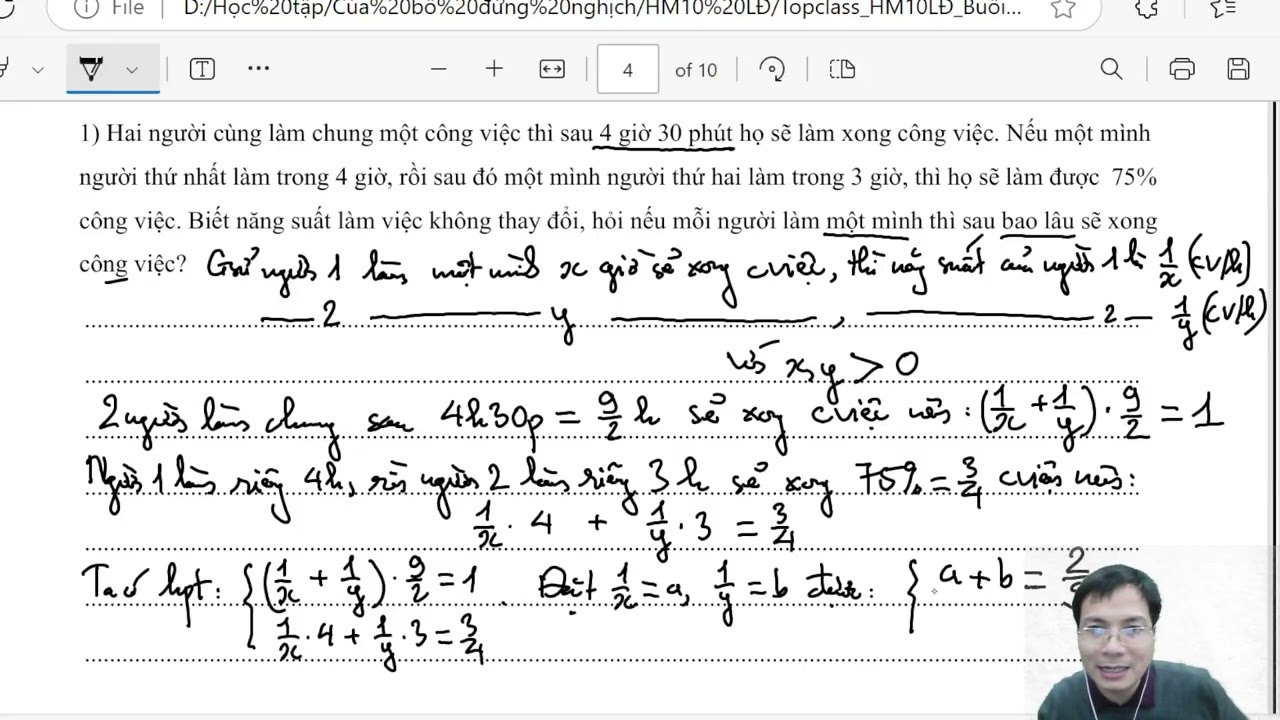 File D:/Học%20tập/Của%20bố%20đứng%20nghịch/HM10%20LĐ/Topclass_HM10LĐ_Buổi...
4 of 10
1) Hai người cùng làm chung một công việc thì sau 4 giờ 30 phút họ sẽ làm xong công việc. Nếu một mình
người thứ nhất làm trong 4 giờ, rồi sau đó một mình người thứ hai làm trong 3 giờ, thì họ sẽ làm được 75%
công việc. Biết năng suất làm việc không thay đổi, hỏi nếu mỗi người làm một mình thì sau bao lâu sẽ xong
công việc? Giả sử người 1 làm một mình x giờ sẽ xong cviệc, thì năng suất của người 1 là 1/x (cv/h)
2 y , 2 1/y (cv/h)
với x, y > 0
2 người làm chung sau 4h30p = 9/2 h sẽ xong cviệc nên: (1/x + 1/y) . 9/2 = 1
Người 1 làm riêng 4h, rồi người 2 làm riêng 3h sẽ xong 75% = 3/4 cviệc nên:
1/x . 4 + 1/y . 3 = 3/4
Ta có hpt: { (1/x + 1/y) . 9/2 = 1 . Đặt 1/x = a, 1/y = b được: { a + b = 2/
1/x . 4 + 1/y . 3 = 3/4